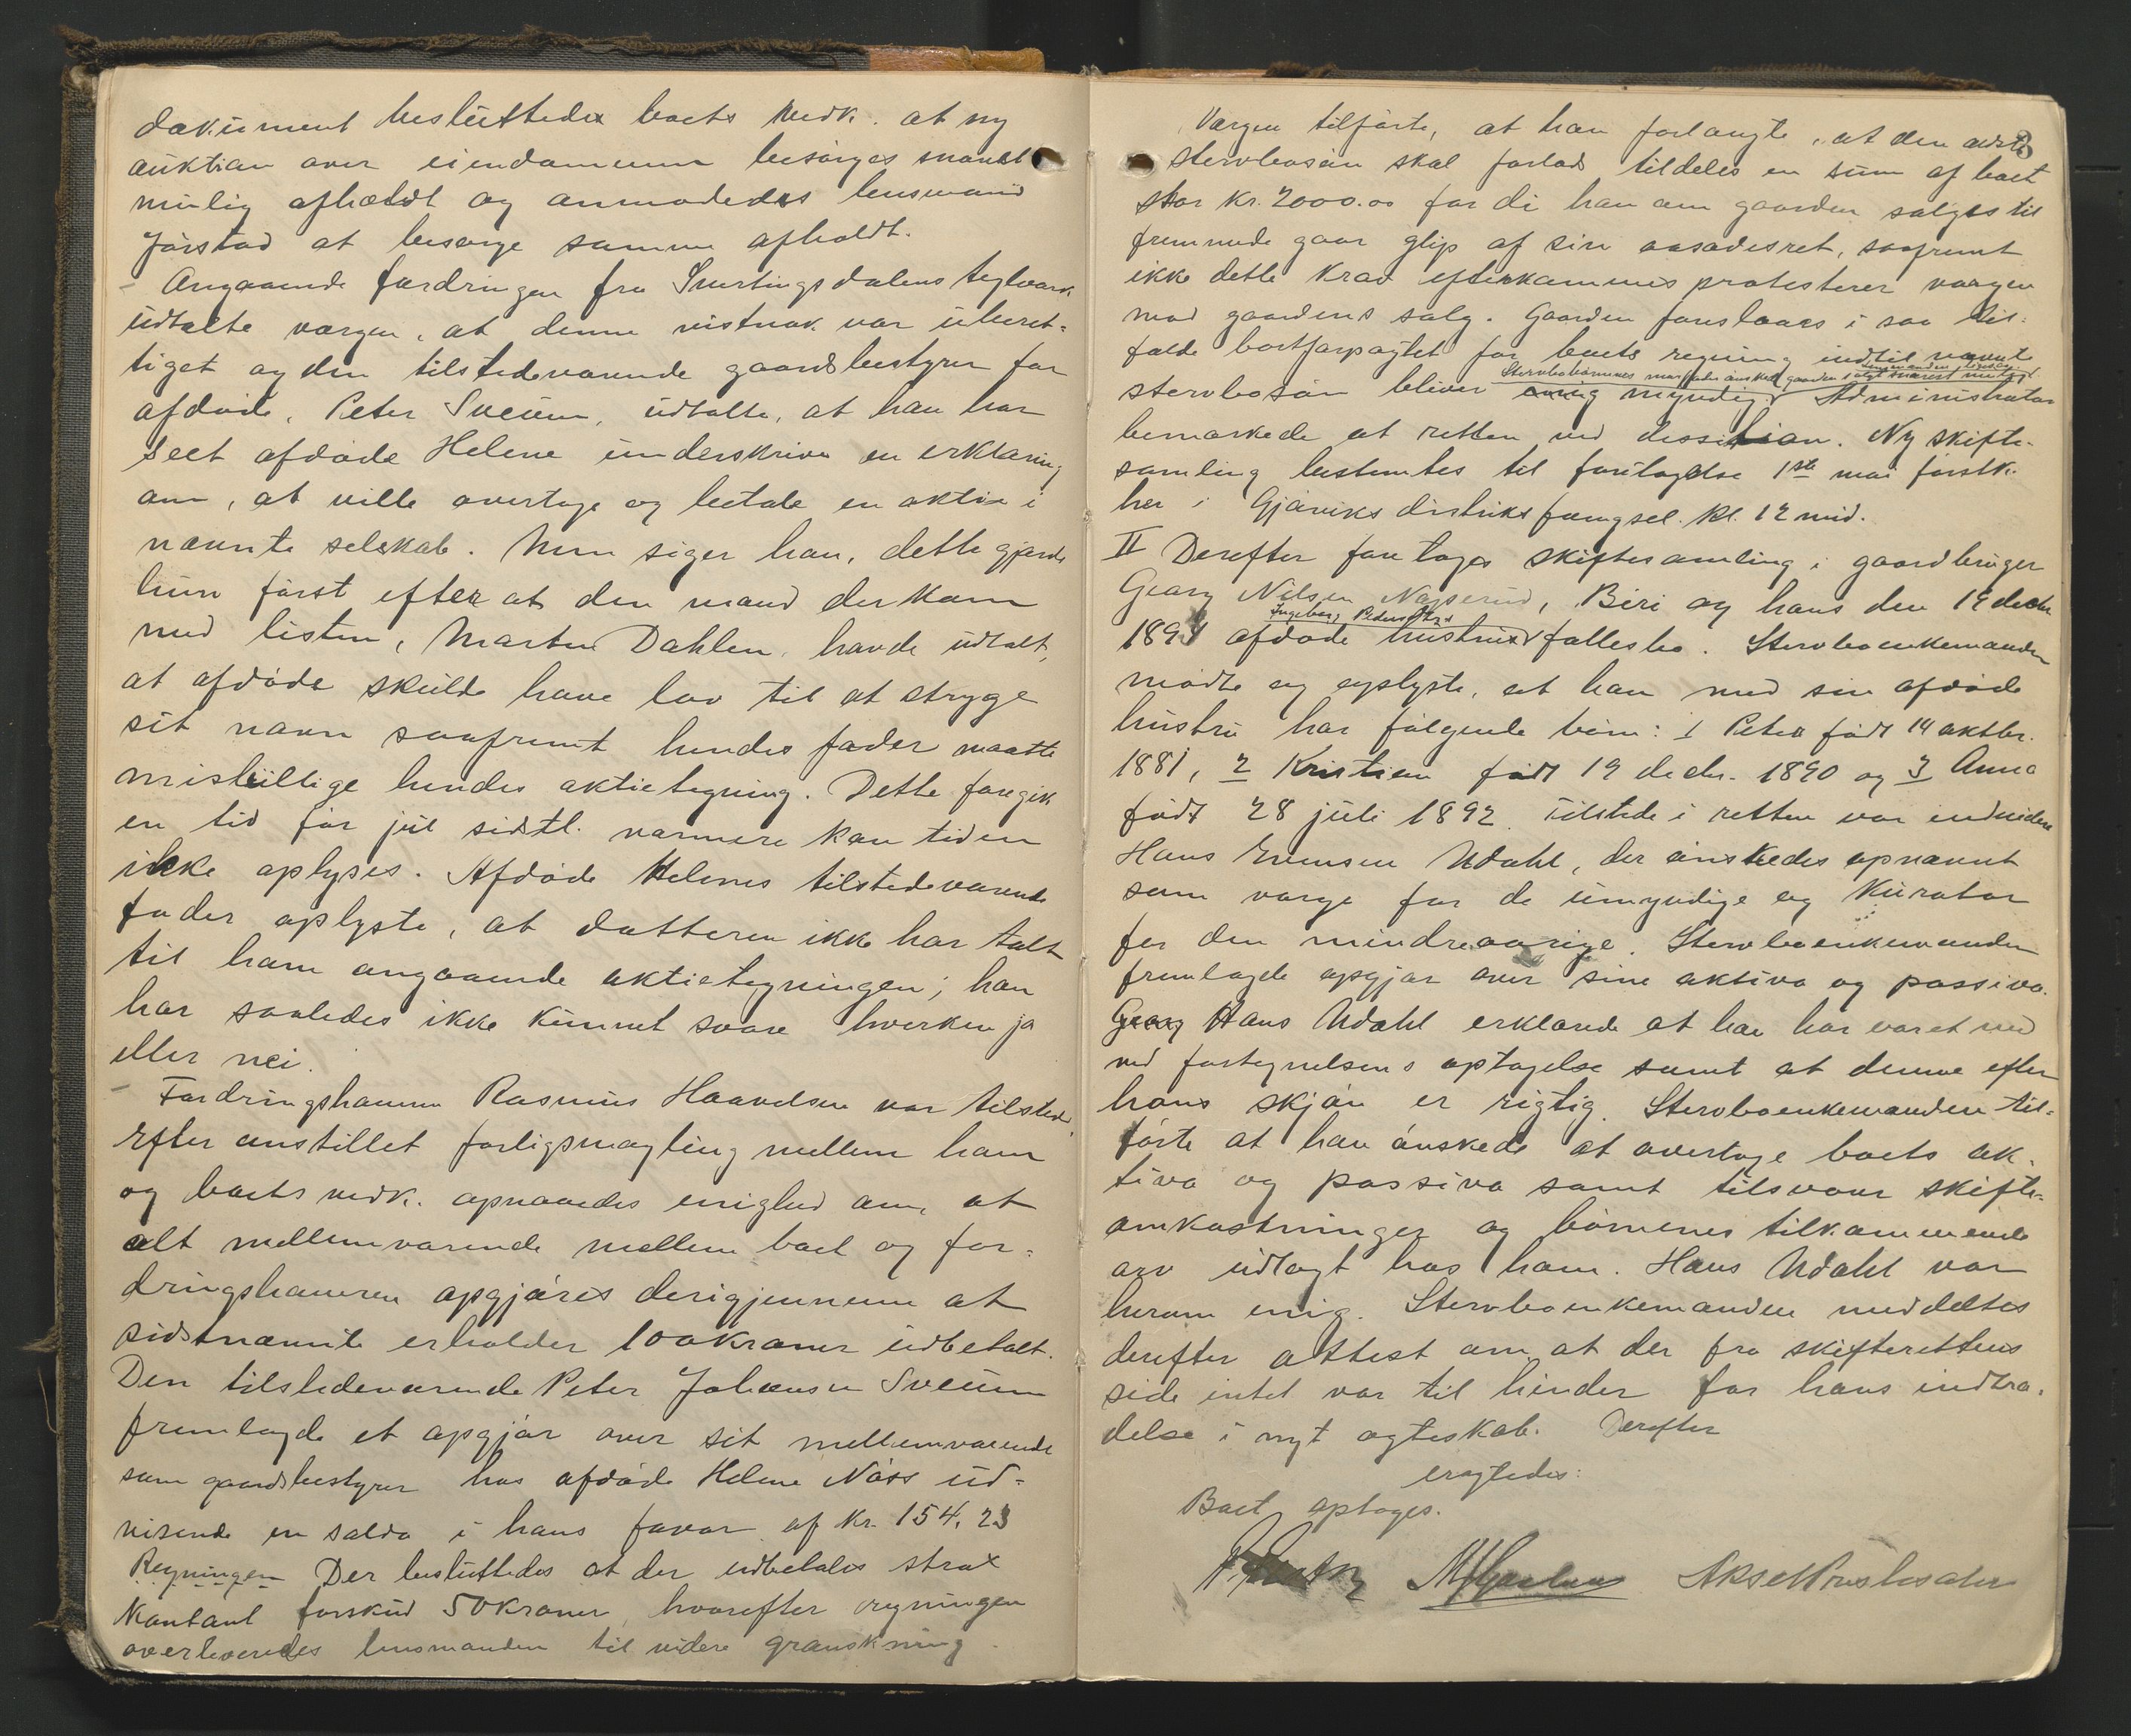 dokument besluttedes boets vedk. at ny
auktion over eiendommen besørges snarest
mulig afholdt og anmodedes lensmand
Jørstad at besørge samme afholdt.
- Angaaende fordringen fra Snertingsdalens teglværk
udtalte vergen, at denne vistnok var uberet-
tiget og den tilstedeværende gaardsbestyrer for
afdøde, Peter Sveum, udtalte, at han har
seet afdøde Helene underskrive en erklæring
om, at ville overtage og betale en aktie i
nævnte selskab. Men siger han, dette gjorde
hun først efter at den mand der kom
med listen, Martin Dahlen, havde udtalt,
at afdøde skulde have lov til at stryge
sit navn saafremt hendes fader maatte
misbillige hendes aktietegning. Dette foregik
en tid før jul sidstl. nærmere kan tiden
ikke oplyses. Afdøde Helenes tilstedeværende
fader oplyste, at datteren ikke har talt
til ham angaaende aktietegningen; han
har saaledes ikke kunnet svare hverken ja
eller nei.
- Fordringshaveren Rasmus Haavelsen var tilstede.
Efter anstillet forligsmægling mellem ham
og boets vedk. opnaaedes enighed om, at
alt mellemværende mellem boet og for-
dringshaveren opgjøres derigjennem at
sidstnævnte erholder 100 kroner udbetalt.
Den tilstedeværende Peter Johansen Sveum
fremlagde et opgjør over sit mellemværende
som gaardsbestyrer hos afdøde Helene Næss ud-
visende en saldo i hans favør af kr. 154,23
Regningen Der besluttedes at der udbetales strax
kontant forskud 50 kroner, hvorefter regningen
overleveredes lensmanden til videre granskning.
3
Vergen tilførte, at han forlangte, at den ældste
stervbosøn skal forlods tildeles en sum af boet
stor kr. 2000.00 fordi han om gaarden sælges til
fremmede gaar glip af sin aasædesret, saafremt
ikke dette krav efterkommes protesterer vergen
mod gaardens salg. Gaarden foreslaaes i saa til-
fælde bortforpagtet for boets regning indtil nævnte
Stervbobørnenes morfader ønsket gaarden solgt snarest mulig
stervbosøn bliver myndig. Administrator
bemærkede at retten ved dessition. Ny skifte-
samling bestemtes til foretagelse 1ste mai førstk.
her i Gjøviks distriktsfængsel kl. 12 mid.
II Derefter foretoges skiftesamling i gaardbruger
Georg Nilsen Nøsserud, Biri og hans den 19 decbr
Ingeborg Pedersdtr.
1894 afdøde hustrus fællesbo. Stervboenkemanden
mødte og oplyste, at han med sin afdøde
hustru har følgende børn: 1 Peter født 14 oktbr.
1881, 2 Kristian født 19 decbr. 1890 og 3 Anna
født 28 juli 1892. Tilstede i retten var endvidere
Hans Evensen Udahl, der ønskedes opnævnt
som verge for de umyndige og kurator
for den mindreaarige. Stervboenkemanden
fremlagde opgjør over sine aktiva og passiva.
Georg Hans Udahl erklærede at han har været med
ved fortegnelsens optagelse samt at denne efter
hans skjøn er rigtig. Stervboenkemanden til-
førte at han ønskede at overtage boets ak-
tiva og passiva samt tilsvare skifte-
omkostninger og børnenes tilkommende
arv udlagt hos ham. Hans Udahl var
herom enig. Stervboenkemanden meddeltes
derefter attest om at der fra skifterettens
side intet var til hinder for hans indtræ-
delse i nyt ægteskab. Derefter
eragtedes:
Boet optages.